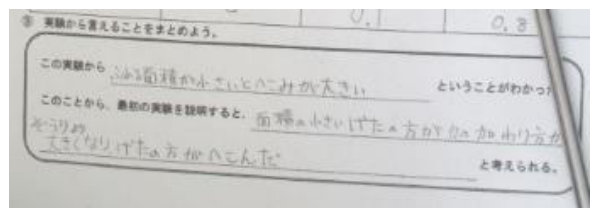 0.1 0.8
③ 実験から言えることをまとめよう。
この実験から ふれる面積が小さいとへこみが大きい ということがわかった
このことから、最初の実験を説明すると、面積の小さいげたの方が力の加わり方が
大きくなりげたの方がへこんだ と考えられる。